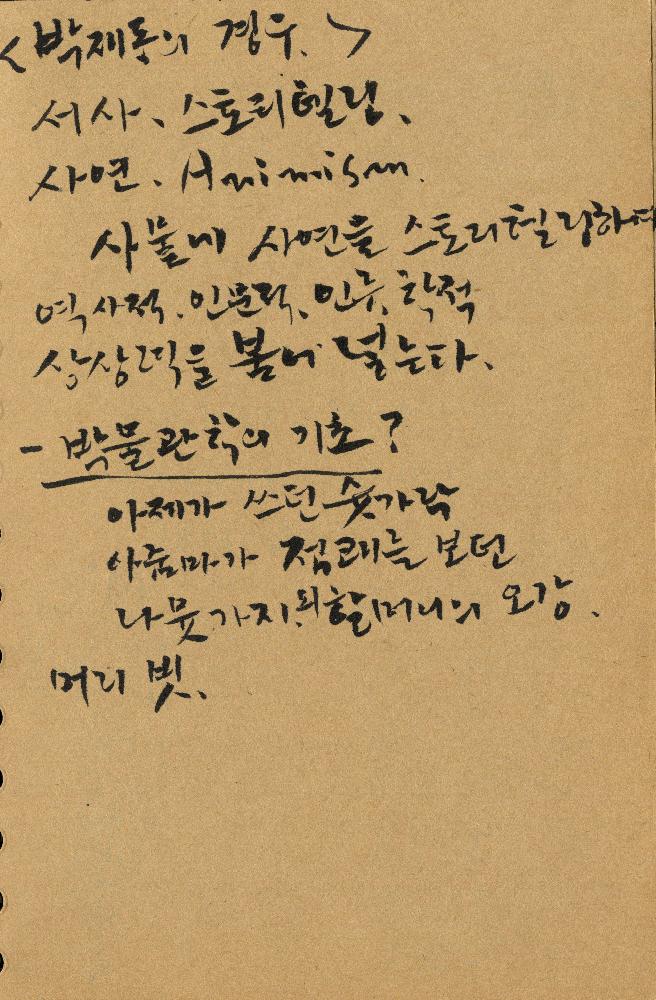 <박재동의 경우.>
서사、스토리텔링、
사연. Animism.
사물에 사연을 스토리텔링하여
역사적.인문적、인류학적
상상력을 봄에 넣는다.
- 박물관학의 기초?
아제가 쓰던 숟가락
아줌마가 점괘를 보던
나뭇가지. 할머니의 요강.
머리 빗、